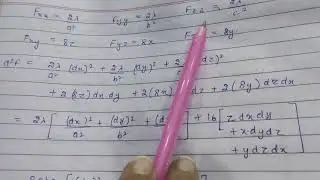 Fxx = 2λ/a² Fyy = 2λ/b² Fzz = 2λ/c²
Fxy = 8z Fyz = 8x = 8y
d²F = 2λ/a² (dx)² + 2λ/b² (dy)² + 2 dz)²
+ 2(8z) dx dy + 2(8x) + 2(8y) dz dx
= 2λ [ (dx)²/a² + (dy)²/b² + (dz ] + 16 [ z dx dy
+ x dy dz
+ y dz dx ]